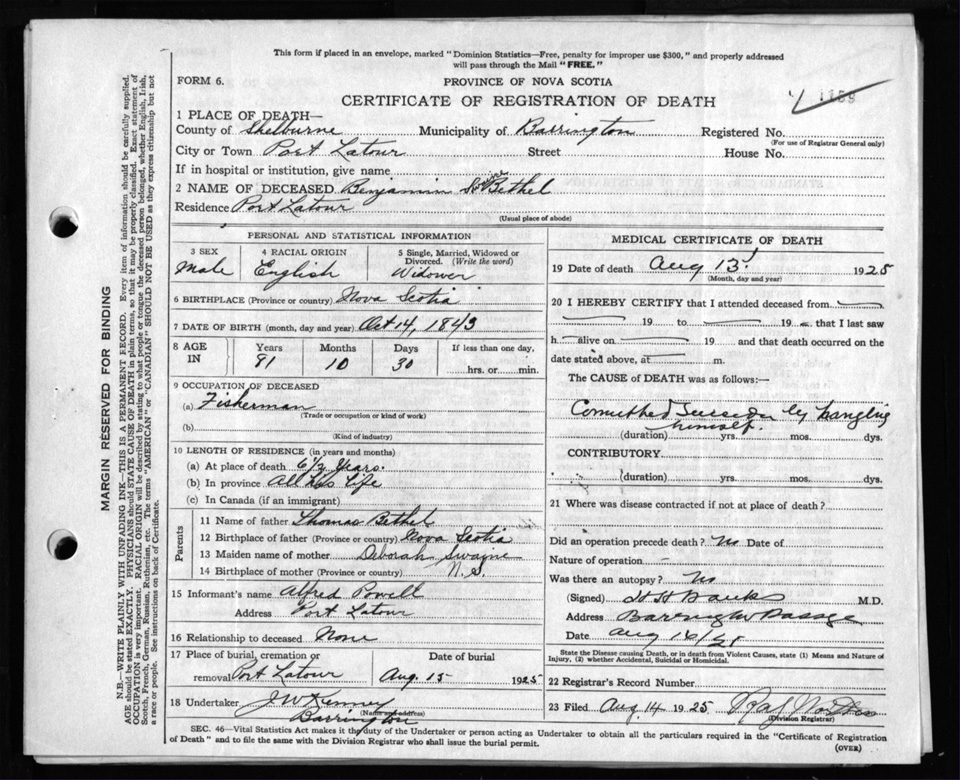 This form if placed in an envelope, marked "Dominion Statistics—Free, penalty for improper use $300," and properly addressed
will pass through the Mail "FREE."
FORM 6.
PROVINCE OF NOVA SCOTIA
CERTIFICATE OF REGISTRATION OF DEATH
1 PLACE OF DEATH—
County of Shelburne Municipality of Barrington Registered No.
(For use of Registrar General only)
City or Town Port Latour Street House No.
If in hospital or institution, give name
2 NAME OF DECEASED Benjamin Bethel
Residence Port Latour
(Usual place of abode)
PERSONAL AND STATISTICAL INFORMATION
3 SEX 4 RACIAL ORIGIN 5 Single, Married, Widowed or
Divorced. (Write the word)
Male English Widower
6 BIRTHPLACE (Province or country) Nova Scotia
7 DATE OF BIRTH (month, day and year) Oct 14, 1843
8 AGE IN Years Months Days If less than one day,
81 10 30 hrs. or min.
9 OCCUPATION OF DECEASED
(a) Fisherman
(Trade or occupation or kind of work)
(b)
(Kind of industry)
10 LENGTH OF RESIDENCE (in years and months)
(a) At place of death 6½ Years.
(b) In province All his Life
(c) In Canada (if an immigrant)
Parents
11 Name of father Thomas Bethel
12 Birthplace of father (Province or country) Nova Scotia
13 Maiden name of mother Deborah Swaine
14 Birthplace of mother (Province or country) N.S.
15 Informant's name Alfred Powell
Address Port Latour
16 Relationship to deceased None
17 Place of burial, cremation or Date of burial
removal Port Latour Aug. 15 1925
18 Undertaker J W Kenney
(Name and address)
Barrington
MEDICAL CERTIFICATE OF DEATH
19 Date of death Aug 13 1925
(Month, day and year)
20 I HEREBY CERTIFY that I attended deceased from
19 to 19 that I last saw
h alive on 19 and that death occurred on the
date stated above, at m.
The CAUSE of DEATH was as follows:—
Committed Suicide by hanging
himself.
(duration) yrs. mos. dys.
CONTRIBUTORY
(duration) yrs. mos. dys.
21 Where was disease contracted if not at place of death?
Did an operation precede death? No Date of
Nature of operation
Was there an autopsy? No
(Signed) H H Banks M.D.
Address Barrington Passage
Date Aug 16/25
State the Disease causing Death, or in death from Violent Causes, state (1) Means and Nature of
Injury, (2) whether Accidental, Suicidal or Homicidal.
22 Registrar's Record Number
23 Filed Aug 14 1925
(Division Registrar)
SEC. 46—Vital Statistics Act makes it the duty of the Undertaker or person acting as Undertaker to obtain all the particulars required in the "Certificate of Registration
of Death" and to file the same with the Division Registrar who shall issue the burial permit.
(OVER)
MARGIN RESERVED FOR BINDING
N.B.—WRITE PLAINLY WITH UNFADING INK—THIS IS A PERMANENT RECORD. Every item of information should be carefully supplied.
AGE should be stated EXACTLY. PHYSICIANS should STATE CAUSE OF DEATH in plain terms, so that it may be properly classified. Exact statement of
OCCUPATION is very important. RACIAL ORIGIN will be described by stating to what people or tongue the deceased person belonged, whether English, Irish,
Scotch, French, German, Russian, Ruthenian, etc. The terms "AMERICAN" or "CANADIAN" SHOULD NOT BE USED as they express citizenship but not
a race or people. See instructions on back of Certificate.